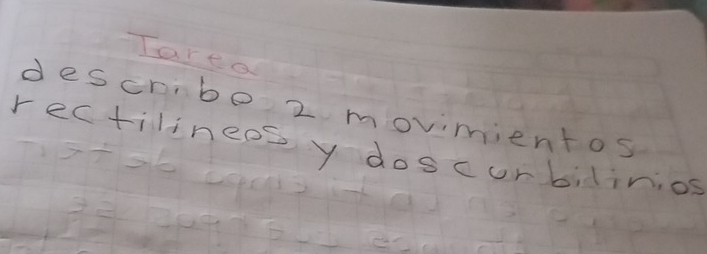 Tarea
describe 2 movimientos
rectilineos y dos curbilinios